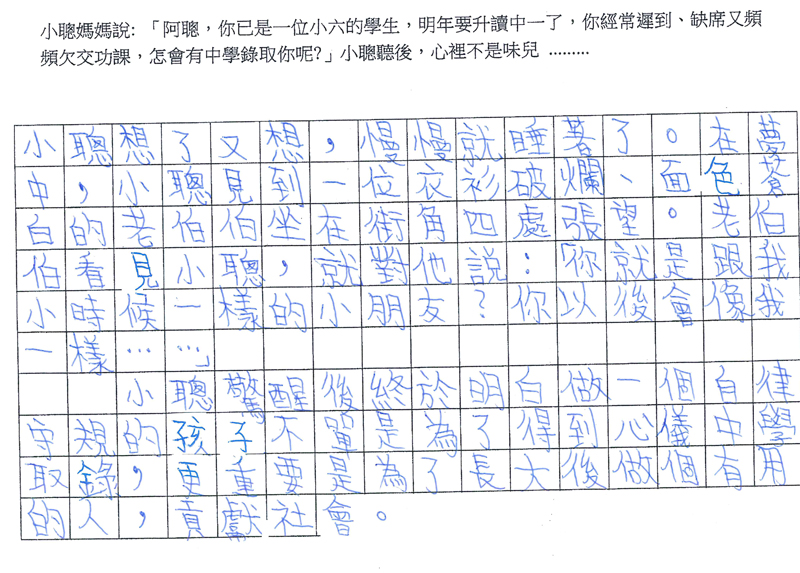 小聰媽媽說:「阿聰，你已是一位小六的學生，明年要升讀中一了，你經常遲到、缺席又頻
頻欠交功課，怎會有中學錄取你呢?」小聰聽後，心裡不是味兒 .........
小聰想了又想，慢慢就睡著了。在夢
中，小聰見到一位衣衫破爛、面色蒼
白的老伯伯坐在街角四處張望。老伯
伯看見小聰，就對他説：「你就是跟我
小時候一樣的小朋友？你以後會像我
一樣……」
小聰驚醒後終於明白做一個自律
守規的孩子不單是為了得到心儀中學
取錄，更重要是為了長大後做個有用
的人，貢獻社會。